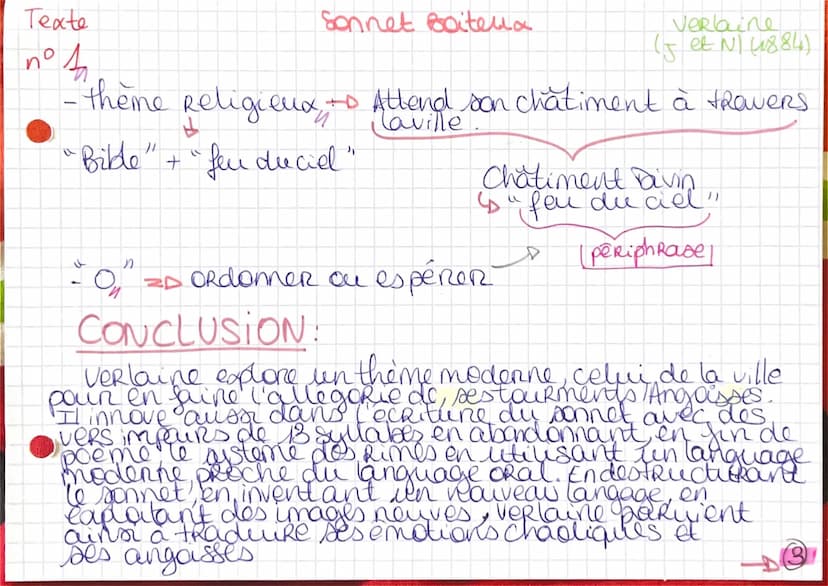 Texte Sonnet Boiteux Verlaine
n° 1 (J et N) (1884)
- thème religieux → Attend son châtiment à travers
la ville.
"Bible" + "feu du ciel"
Châtiment Divin
↳ "feu du ciel"
périphrase
- "O" => ordonner ou espérer
CONCLUSION:
Verlaine explore un thème moderne, celui de la ville
pour en faire l'allégorie de ses tourments/Angoisses.
Il innove aussi dans l'écriture du sonnet avec des
vers impairs de 13 syllabes en abandonnant, en fin de
poème le système des rimes en utilisant un language
moderne, proche du language oral. En destructurant
le sonnet, en inventant un nouveau langage, en
exploitant des images neuves, Verlaine parvient
ainsi à traduire ses émotions chaotiques et
ses angoisses
→ 3